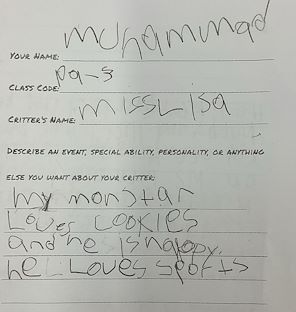 muhammad
YOUR NAME:
pa-s
CLASS CODE:
missLisa
CRITTER'S NAME:
DESCRIBE AN EVENT, SPECIAL ABILITY, PERSONALITY, OR ANYTHING
ELSE YOU WANT ABOUT YOUR CRITTER:
my monstar
Loves cookies
and he is happy.
he Loves spofts